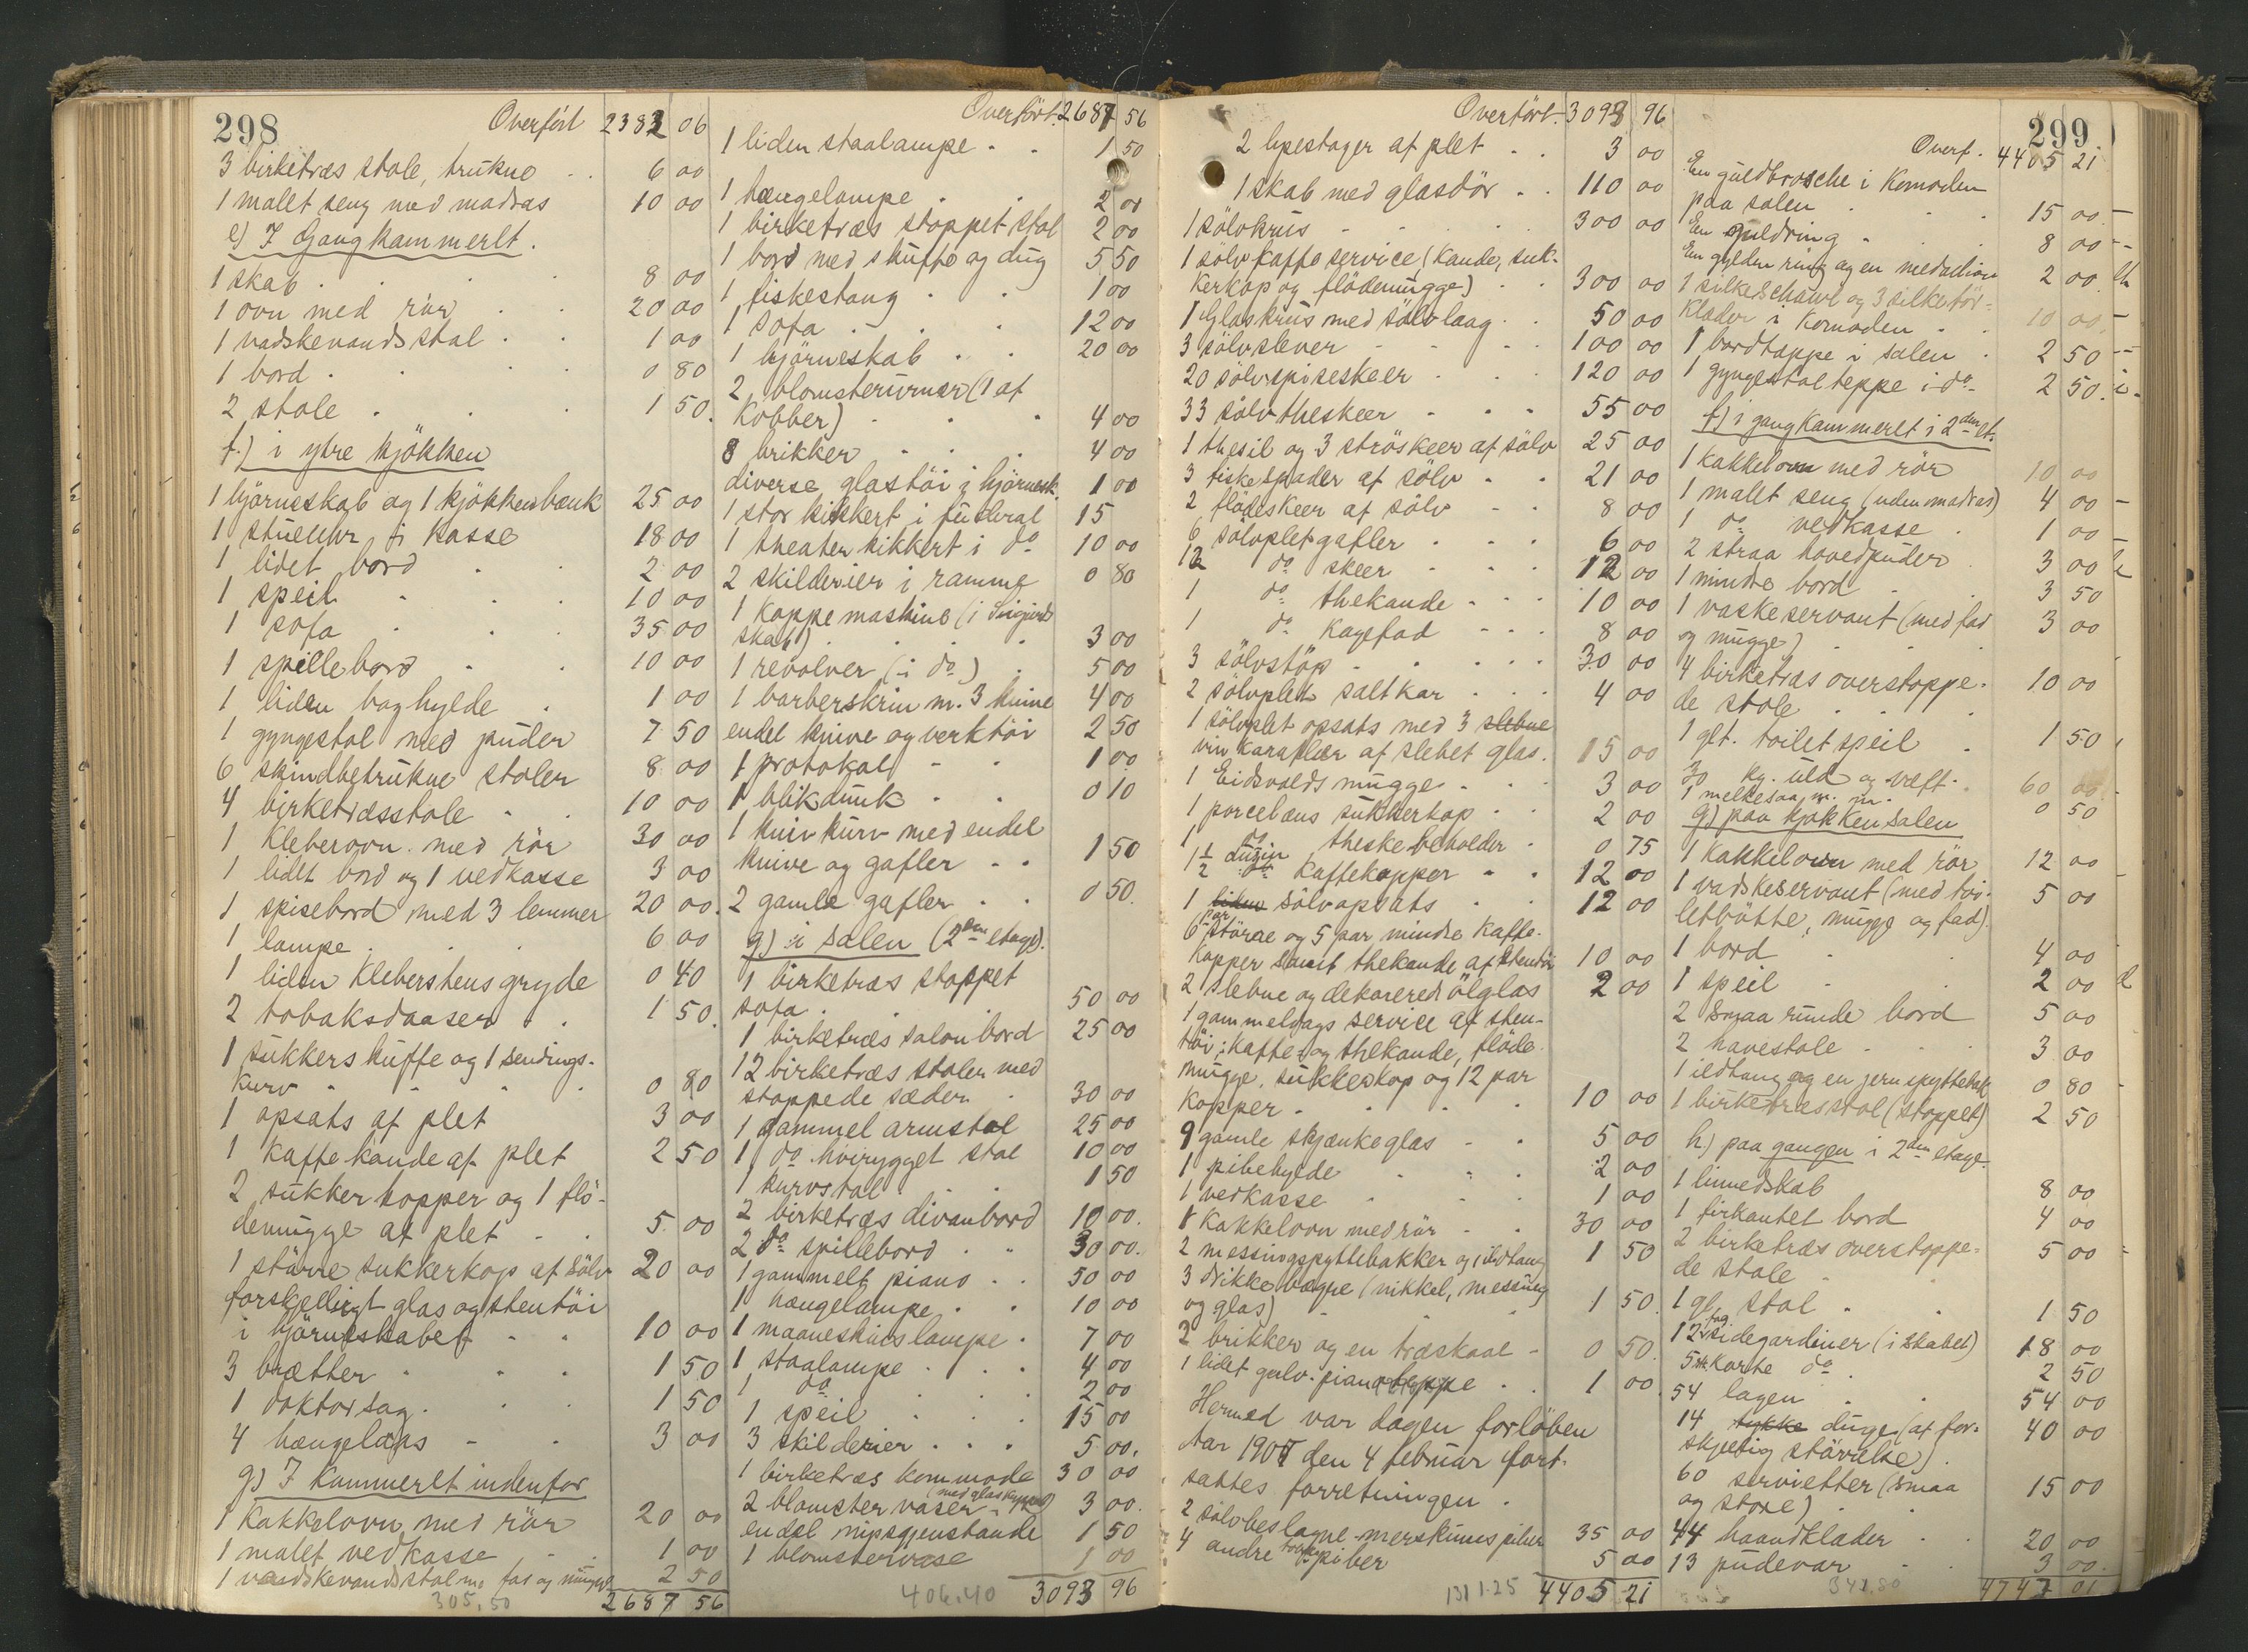 298
Overfört 2382 06
3 birketræs stole, trukne . . 6 00
1 malet seng med madras 10 00
e) I Gangkammerlt.
1 skab . . . 8 00
1 ovn med rör . . 20 00
1 vadskevandsstol . . 1 00
1 bord . . . 0 80
2 stole . . . 1 50
f.) i ytre kjökken
1 hjörneskab og 1 kjökkenbænk 25 00
1 stueuhr i kasse 18 00
1 lidet bord . . 2 00
1 speil . . . 10 00
1 sofa . . . 35 00
1 spillebord . . 10 00
1 liden boghylde . 1 00
1 gyngestol med puder 7 50
6 skindbetrukne stoler 8 00
4 birketræsstole . . 10 00
1 Kleberovn med rör 30 00
1 lidet bord og 1 vedkasse 3 00
1 spisebord med 3 lemmer 20 00
1 lampe . . . 6 00
1 liden Kleberstensgryde 0 40
2 tobaksdaaser . . 1 50
1 sukkerskuffe og 1 sendings-
kurv . . . 0 80
1 opsats af plet 3 00
1 Kaffekande af plet 2 50
2 sukkerkopper og 1 flö-
demugge af plet - . 5 00
1 större sukkerkop af sölv 20 00
forskjelligt glas og stentöi
i hjörneskabet - . 10 00
3 brætter . . . 1 50
1 doktorsag . . . 1 50
4 hængelaas - . 3 00
g) I Kammerlt indenfor
1 Kakkelovn med rör 20 00
1 malet vedkasse . . 1 00
1 vaadskevandsstol m. fad og mugge 2 50
305.50 2687 56
Overfört. 2687 56
1 liden staalampe . . 1 50
1 hængelampe . . 2 00
1 birketræs stoppet stol 2 00
1 bord med skuffe og dug 5 50
1 fiskestang . . 1 00
1 sofa . . . 12 00
1 hjörneskab . . 20 00
2 blomsterurner (1 af
Kobber) . . . 4 00
8 brikker . . . 4 00
diverse glastöi i hjörnesk. 1 00
1 stor kikkert i futteral 15
1 theaterkikkert i do 10 00
2 skilderier i ramme 0 80
1 koppemaskine (i Sigurds
skab) . . . 3 00
1 revolver (i do) . 5 00
1 barberskrin m. 3 knive 4 00
endel knive og verktöi 2 50
1 protokol - - 1 00
1 blikdunk . . 0 10
1 knivkurv med endel
knive og gafler . . 1 50
2 gamle gafler . . 0 50
g) i salen (2den etage).
1 birketræs stoppet
sofa . . . 50 00
1 birketræs salonbord 25 00
12 birketræs stoler med
stoppede sæder . 30 00
1 gammel armstol 25 00
1 do. hvirygget stol 10 00
1 kurvstol . . 1 50
2 birketræs divanbord 10 00
2 do spillebord . . 30 00
1 gammelt piano . . 50 00
1 hængelampe . . 10 00
1 maaneskinslampe . 7 00
1 staalampe . . . 4 00
1 do . . . 2 00
1 speil . . . 15 00
3 skilderier . . . 5 00
1 birketræs kommode 30 00
2 blomstervaser (med glaskuppel) 3 00
endel nipsgjenstande 1 50
1 blomstervase 1 00
406.40 3093 96
Overfört. 3093 96
2 lysestager af plet . . 3 00
1 skab med glasdör . . 110 00
1 sölvkrus - . . . 300 00
1 sölvkaffeservice (kande, suk-
kerkop og flödemugge) . . 300 00
1 Glaskrus med sölvlaag . . 50 00
3 sölvslever - - - . 100 00
20 sölvspiseskeer . . . 120 00
33 sölvtheskeer - . . 55 00
1 thesil og 3 ströskeer af sölv 25 00
3 fiskespader af sölv . . 21 00
2 flödeskeer af sölv - - 8 00
6 sölvpletgafler . . . 6 00
12 do skeer - - . 12 00
1 do thekande - - - 10 00
1 do Kagefad - - - 8 00
3 sölvstöp . . . . 30 00
2 sölvplet saltkar . . . 4 00
1 sölvplet opsats med 3 slebne
vinkarafler af slebet glas . 15 00
1 Eidsvolds mugge . . . 3 00
1 porcelæns sukkerkop . . 2 00
1 do theskebeholder . 0 75
1½ dusin Kaffekopper . . 12 00
1 liden sölvopsats . . 12 00
6 par större og 5 par mindre Kaffe-
kopper samt thekande af stentöi 10 00
2 slebne og dekorerede ölglas 2 00
1 gammeldags service af sten-
töi: kaffe- og thekande, flöde
mugge, sukkerkop og 12 par
Kopper . . . . 10 00
9 gamle skjænkeglas - . 5 00
1 pibehylde . . . 2 00
1 vedkasse . . . 1 00
1 Kakkelovn med rör - . 30 00
2 messingspyttebakker og 1 ildtang 1 50
3 drikkebægre (nikkel, messing
og glas) . . . 1 50
2 brikker og en træskaal - 0 50
1 lidet gulv- pianoteppe . . 1 00
Hermed var dagen forlöben
Aar 1907 den 4 februar fort-
sattes forretningen .
2 sölvbeslagne merskumspiber 35 00
4 andre piber 5 00
1311.25 4405 21
299
Overf. 4405 21
En guldbrosche i Komoden
paa salen . . . 15 00
En guldring . . . 8 00
En gylden ring og en medaillon 2 00
1 silkeschawl og 3 silketör-
klæder i Komoden . . 10 00
1 bordtæppe i salen . 2 50
1 gyngestolteppe i do- 2 50
f) i gangkammerlt i 2den et.
1 kakkelovn med rör 10 00
1 malet seng (uden madras) 4 00
1 do vedkasse . 1 00
2 straa hovedpuder . 3 00
1 mindre bord . . 3 50
1 vaskeservant (med fad
og mugge) . . . 3 00
4 birketræs overstoppe-
de stole . . . 10 00
1 glt. toiletspeil . 1 50
30 kg. uld og væft . 60 00
1 melkesaa m. m. 0 50
g) paa kjøkkensalen
1 Kakkelovn med rör 12 00
1 vadskeservant (med toi-
letbötte, mugge og fad) 5 00
1 bord . . 4 00
1 speil - . 2 00
2 smaa runde bord 5 00
2 havestole - . . 3 00
1 ildtang og en jernspyttebak 0 80
1 birketræsstol (stoppet) 2 50
h) paa gangen i 2den etage
1 linnedskab 8 00
1 firkantet bord 4 00
2 birketræs overstoppe-
de stole - . . 5 00
1 gl. stol . . 1 50
12 fag sidegardiner (i skabet) 18 00
5 stk korte do . 2 50
54 lagen . . 54 00
14 tykke duge (af for-
skjellig störrelse) 40 00
60 servietter (smaa
og store) . . 15 00
44 haandklæder . . 20 00
13 pudevar . . 3 00
341.80 4747 01